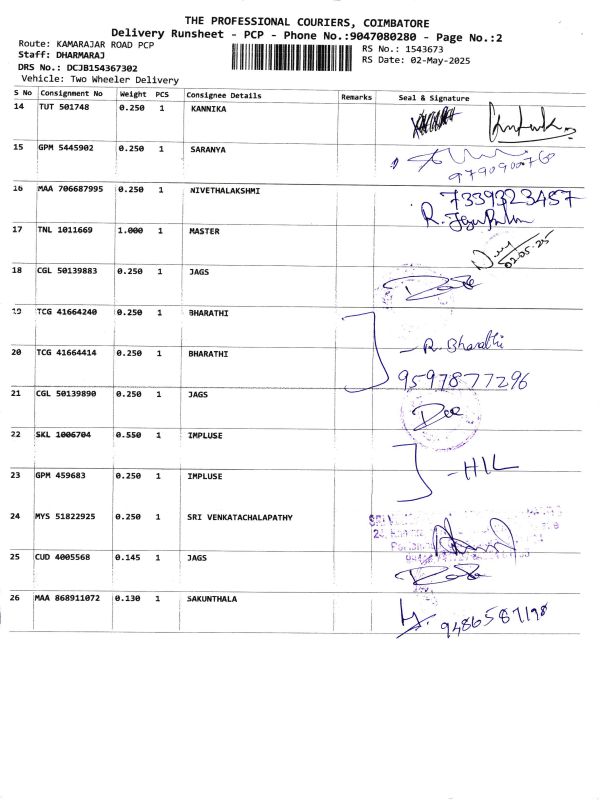 THE PROFESSIONAL COURIERS, COIMBATORE
Delivery Runsheet - PCP - Phone No.:9047080280 - Page No.:2
Route: KAMARAJAR ROAD PCP
RS No.: 1543673
Staff: DHARMARAJ
RS Date: 02-May-2025
DRS No.: DCJB154367302
Vehicle: Two Wheeler Delivery
S No Consignment No Weight PCS Consignee Details Remarks Seal & Signature
14 TUT 501748 0.250 1 KANNIKA
15 GPM 5445902 0.250 1 SARANYA
9790900760
16 MAA 706687995 0.250 1 NIVETHALAKSHMI 7339323457
17 TNL 1011669 1.000 1 MASTER
02-05-25
18 CGL 50139883 0.250 1 JAGS
19 TCG 41664240 0.250 1 BHARATHI
R. Bharathi
20 TCG 41664414 0.250 1 BHARATHI
9597877296
21 CGL 50139890 0.250 1 JAGS
22 SKL 1006704 0.550 1 IMPLUSE
- HIL
23 GPM 459683 0.250 1 IMPLUSE
24 MYS 51822925 0.250 1 SRI VENKATACHALAPATHY
25 CUD 4005568 0.145 1 JAGS
26 MAA 868911072 0.130 1 SAKUNTHALA
9486587198